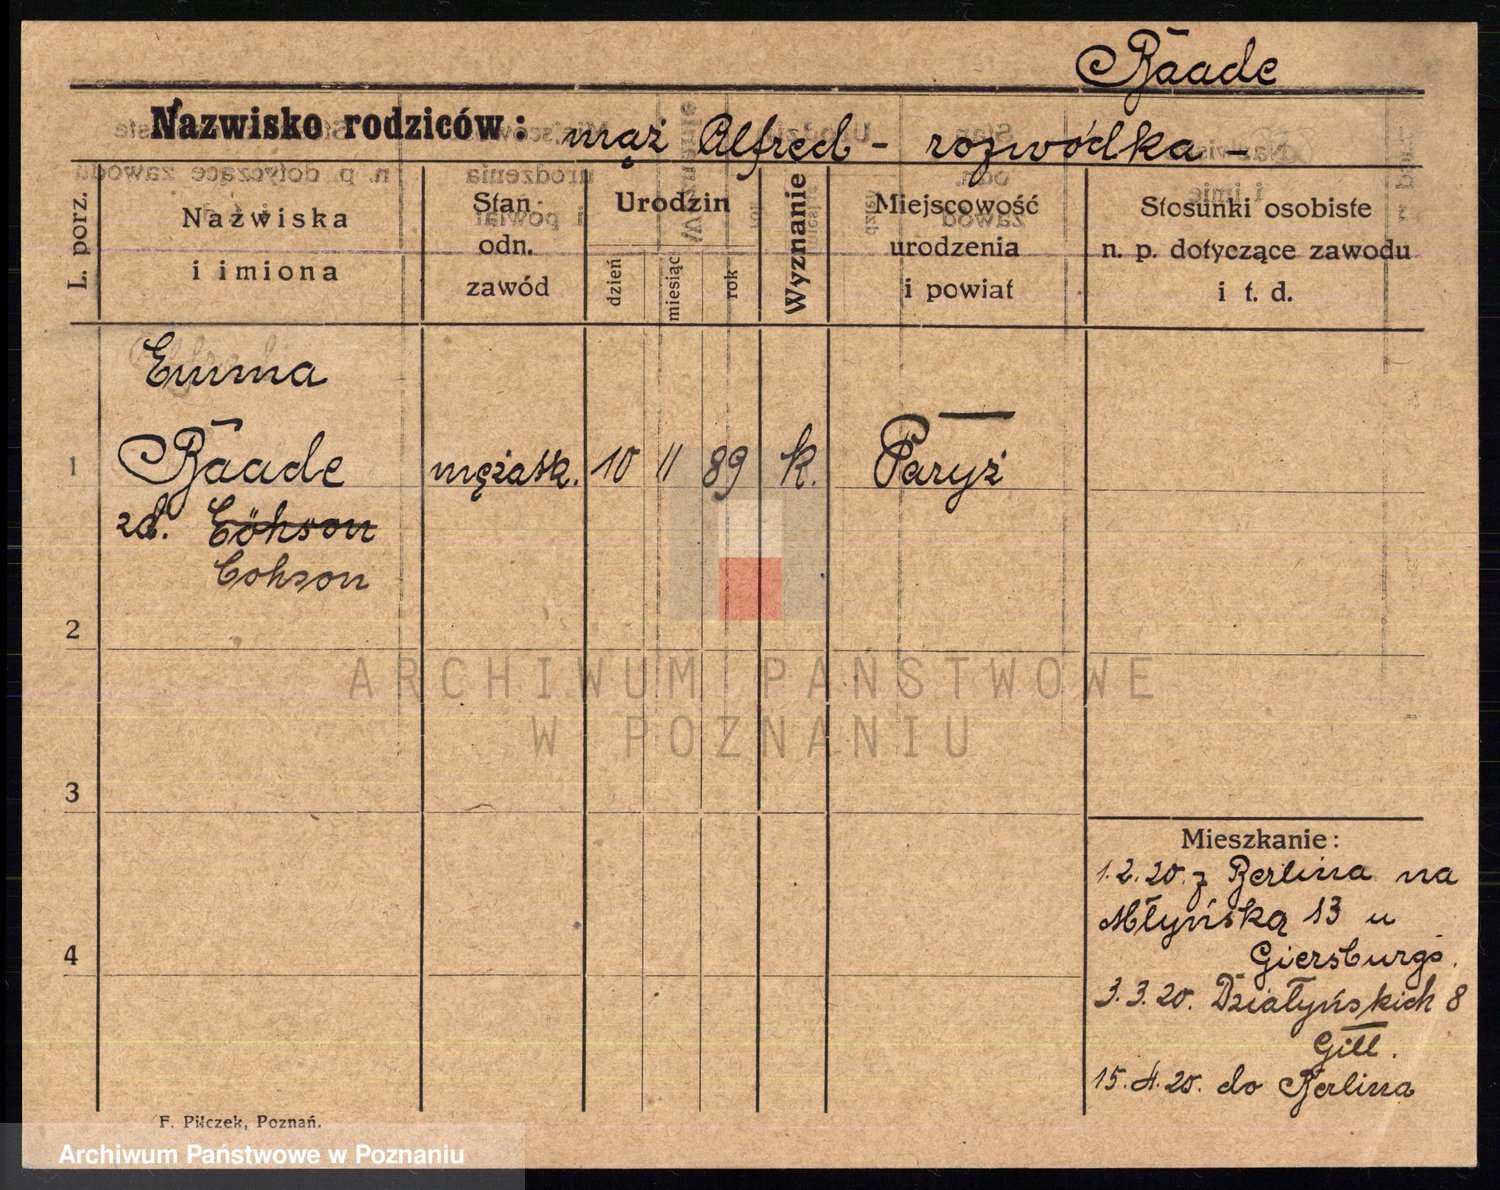 Raade
Nazwisko rodziców: mąż Alfred - rozwódka -
L. porz.
Nazwiska
i imiona
Stan
odn.
zawód
Urodzin
dzień
miesiąc
rok
Wyznanie
Miejscowość
urodzenia
i powiat
Stosunki osobiste
n. p. dotyczące zawodu
i t. d.
Emma
1 Raade mężatk. 10 11 89 k. Paryż
zd. Cöhson
Cohson
2
3
4
Mieszkanie:
1.2.20. z Berlina na
Młyńską 13 u
Giersburgs.
3.3.20. Działyńskich 8
Gill.
15.4.20. do Berlina
F. Pilczek, Poznań.
ARCHIWUM PAŃSTWOWE
W POZNANIU
Archiwum Państwowe w Poznaniu